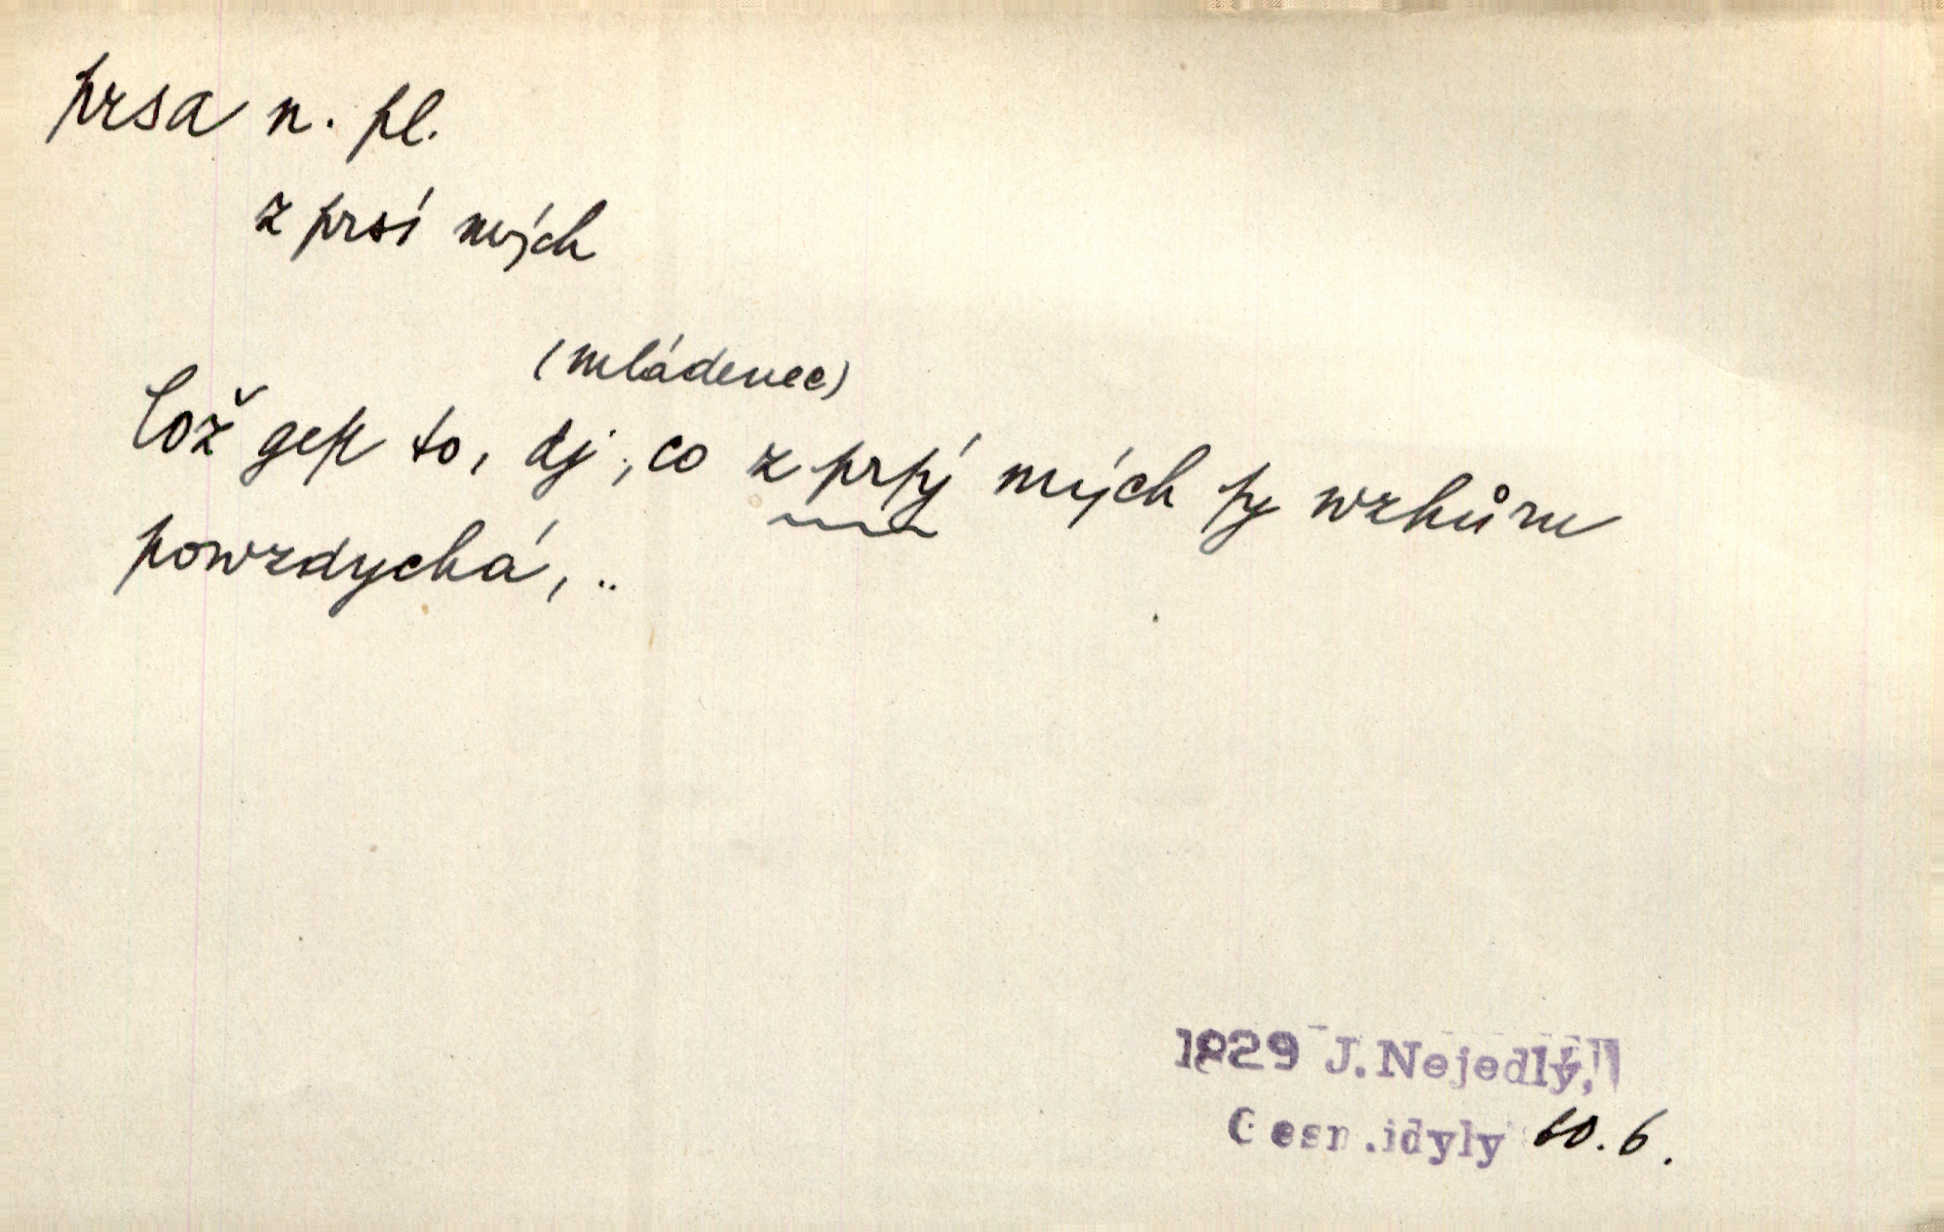 prsa n. pl.
z prsí mých
(mládenec)
Což geſt to, dj:, co z prſý mých ſy wzhůru
powzdychá, ..
1829 J.Nejedlý,
Gesn.idyly 60.6.